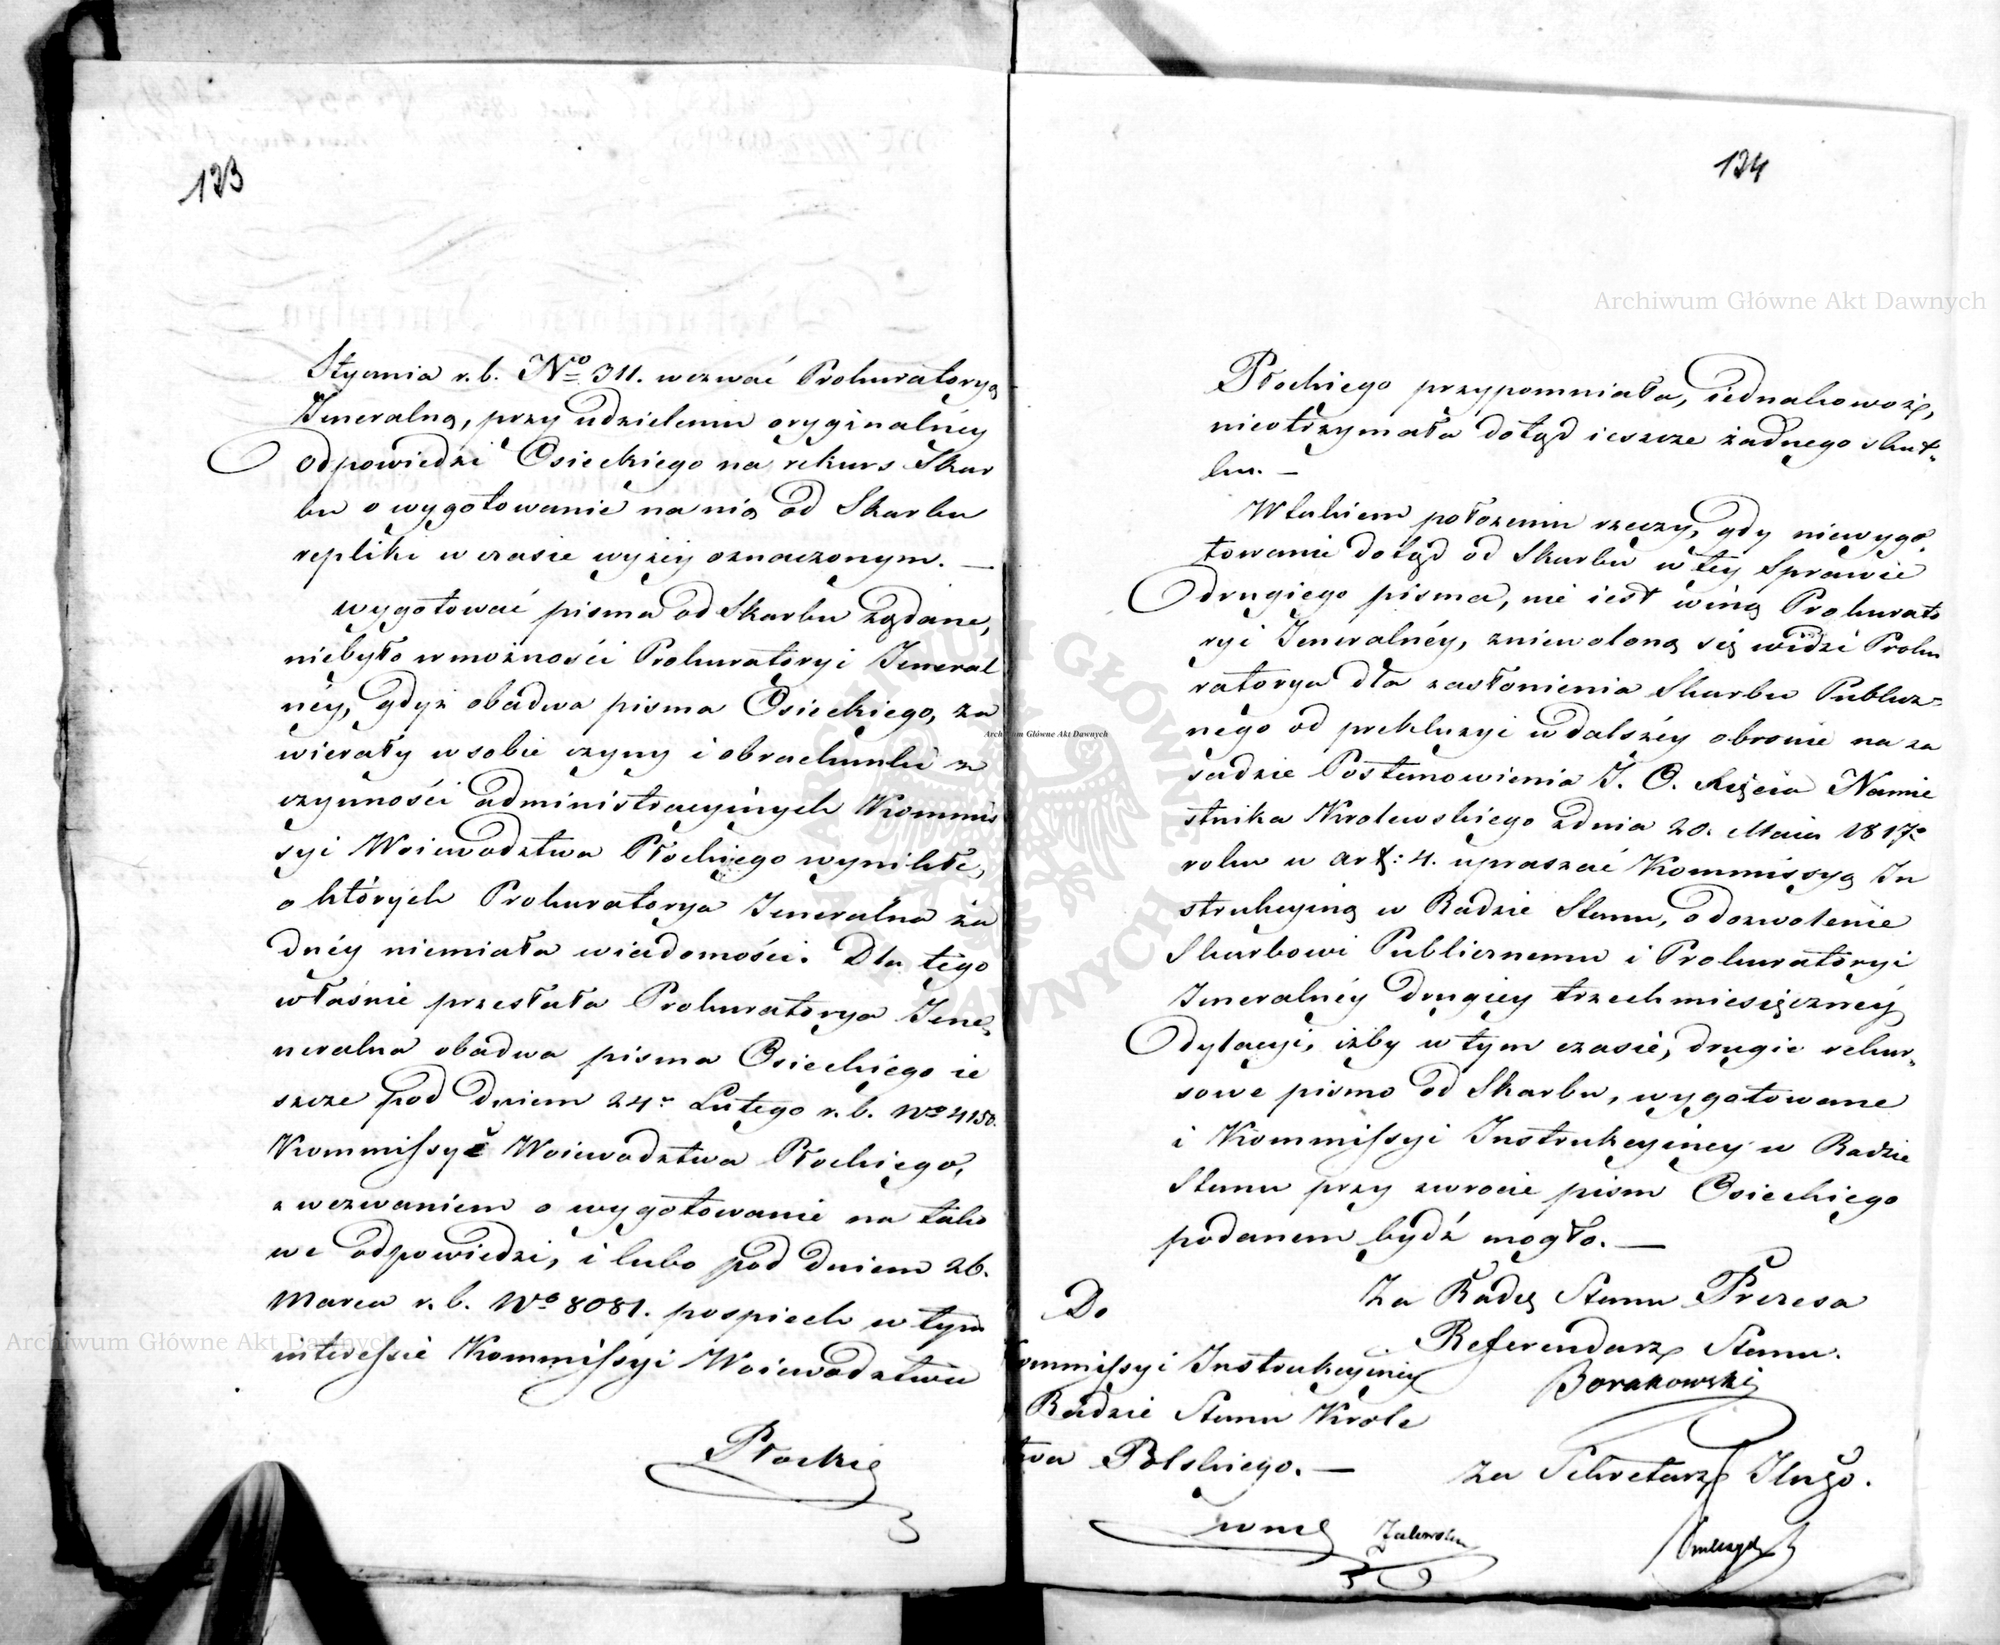 123
Stycznia r. b. No 311. wezwać Prokuratoryą
Jeneralną, przy udzieleniu oryginalnéy
Odpowiedzi Osieckiego na rekurs Skar
bu o wygotowanie na nią od Skarbu
repliki w czasie wyżey oznaczonym. —
Wygotować pisma od Skarbu żądane,
niebyło w możności Prokuratoryi Jeneral
néy, gdyż obadwa pisma Osieckiego, za
wierały w sobie czyny i obrachunki z
czynności administracyinych Kommis
syi Woiewodztwa Płockiego wynikłe,
o których Prokuratorya Jeneralna ża
dnéy niemiała wiadomości. Dla tego
właśnie przesłała Prokuratorya Jene,
neralna obadwa pisma Osieckiego ie
szcze pod dniem 24. Lutego r. b. No 4150.
Kommissyi Woiewodztwa Płockiego,
z wezwaniem o wygotowanie na tako
we odpowiedzi, i lubo pod dniem 26.
Marca r. b. No 8081. pospiech w tym
interessie Kommissyi Woiewodztwa
Płockie
124
Płockiego przypomniała, iednakowoż,
nieotrzymała dotąd ieszcze żadnego skut-
ku. —
W takiem położeniu rzeczy, gdy niewygo,
towanie dotąd od Skarbu w tey Sprawie
drugiego pisma, nie iest winą Prokurato
ryi Jeneralnéy, zniewoloną się widzi Proku
ratorya dla zasłonienia Skarbu Publicz=
nego od prekluzyi w dalszéy obronie na za
sadzie Postanowienia J. O. Xięcia Namie
stnika Krolewskiego z dnia 20. Maia 1817.
roku w art: 4. upraszać Kommissyą In
strukcyiną w Radzie Stanu, o dozwolenie
Skarbowi Publicznemu i Prokuratoryi
Jeneralnéy drugiey trzechmiesięcznéy
Dylacyi, iżby w tym czasie, drugie rekur,
sowe pismo od Skarbu, wygotowane
i Kommissyi Instrukcyiney w Radzie
Stanu przy zwrocie pism Osieckiego
podanem bydź mogło. —
Za Radcę Stanu Prezesa
Referendarz Stanu.
Borakowski
Do
Kommissyi Instrukcyiney
Radzie Stanu Krole
twa Polskiego. —
Za Sekretarza Jlnego.
Archiwum Główne Akt Dawnych
Archiwum Główne Akt Dawnych
Archiwum Główne Akt Dawnych
ARCHIWUM GŁÓWNE AKT DAWNYCH